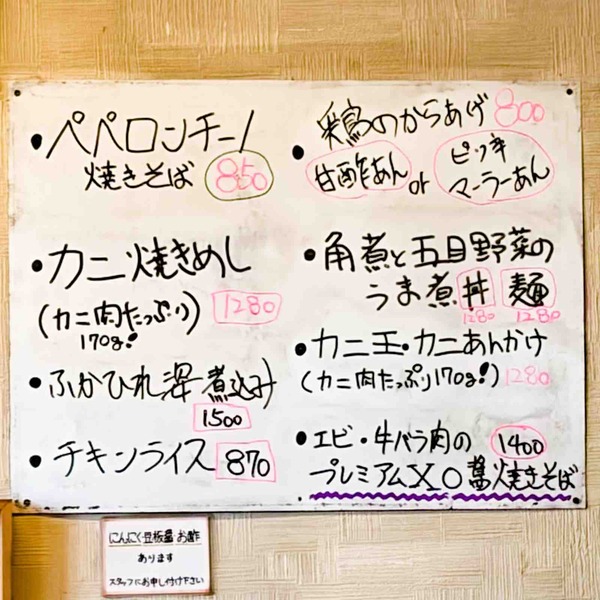 ・ペペロンチーノ
焼きそば 850
・カニ焼きめし
(カニ肉たっぷり) 1280
170g!
・ふかひれ澤煮込み
1500
・チキンライス 870
・鶏のからあげ 800
甘酢あん or ピリ辛マーラーあん
・角煮と五目野菜の
うま煮丼 麺
1280 1280
・カニ玉・カニあんかけ
(カニ肉たっぷり170g!) 1280
・エビ・牛バラ肉の 1400
プレミアムXO醤焼きそば
にんにく 豆板醤 お酢
あります
スタッフにお申し付け下さい